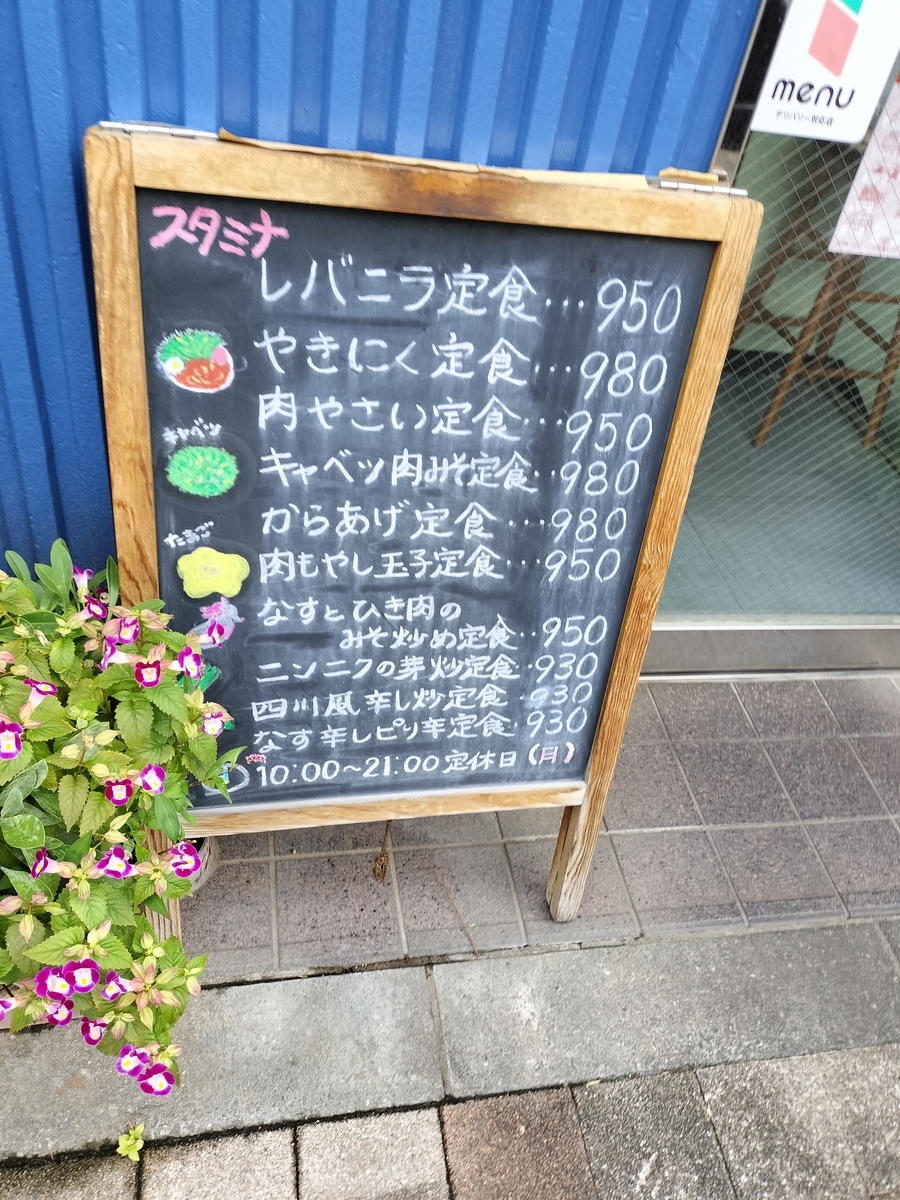 menu
デリバリー対応店
スタミナ
レバニラ定食…950
やきにく定食…980
肉やさい定食…950
キャベツ
キャベツ肉みそ定食…980
からあげ定食…980
たまご
肉もやし玉子定食…950
なすとひき肉の
みそ炒め定食…950
ニンニクの芽炒定食…930
四川風辛し炒定食…930
なす辛しピリ辛定食…930
10:00~21:00 定休日(月)